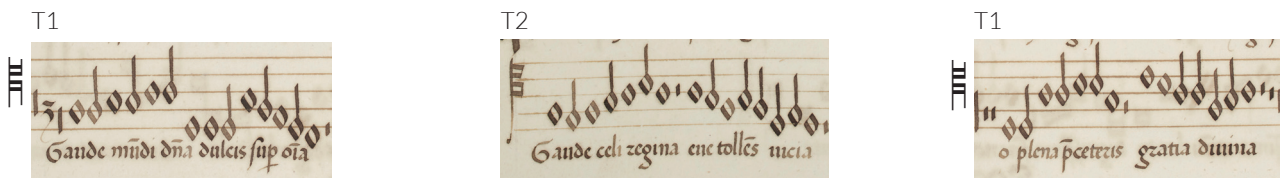 T1
T2
T1
Gaude mūdi dn̄a dulcis sup oīa
Gaude celi regina eue tollēs
o plena p̄ceteris gratia diuina